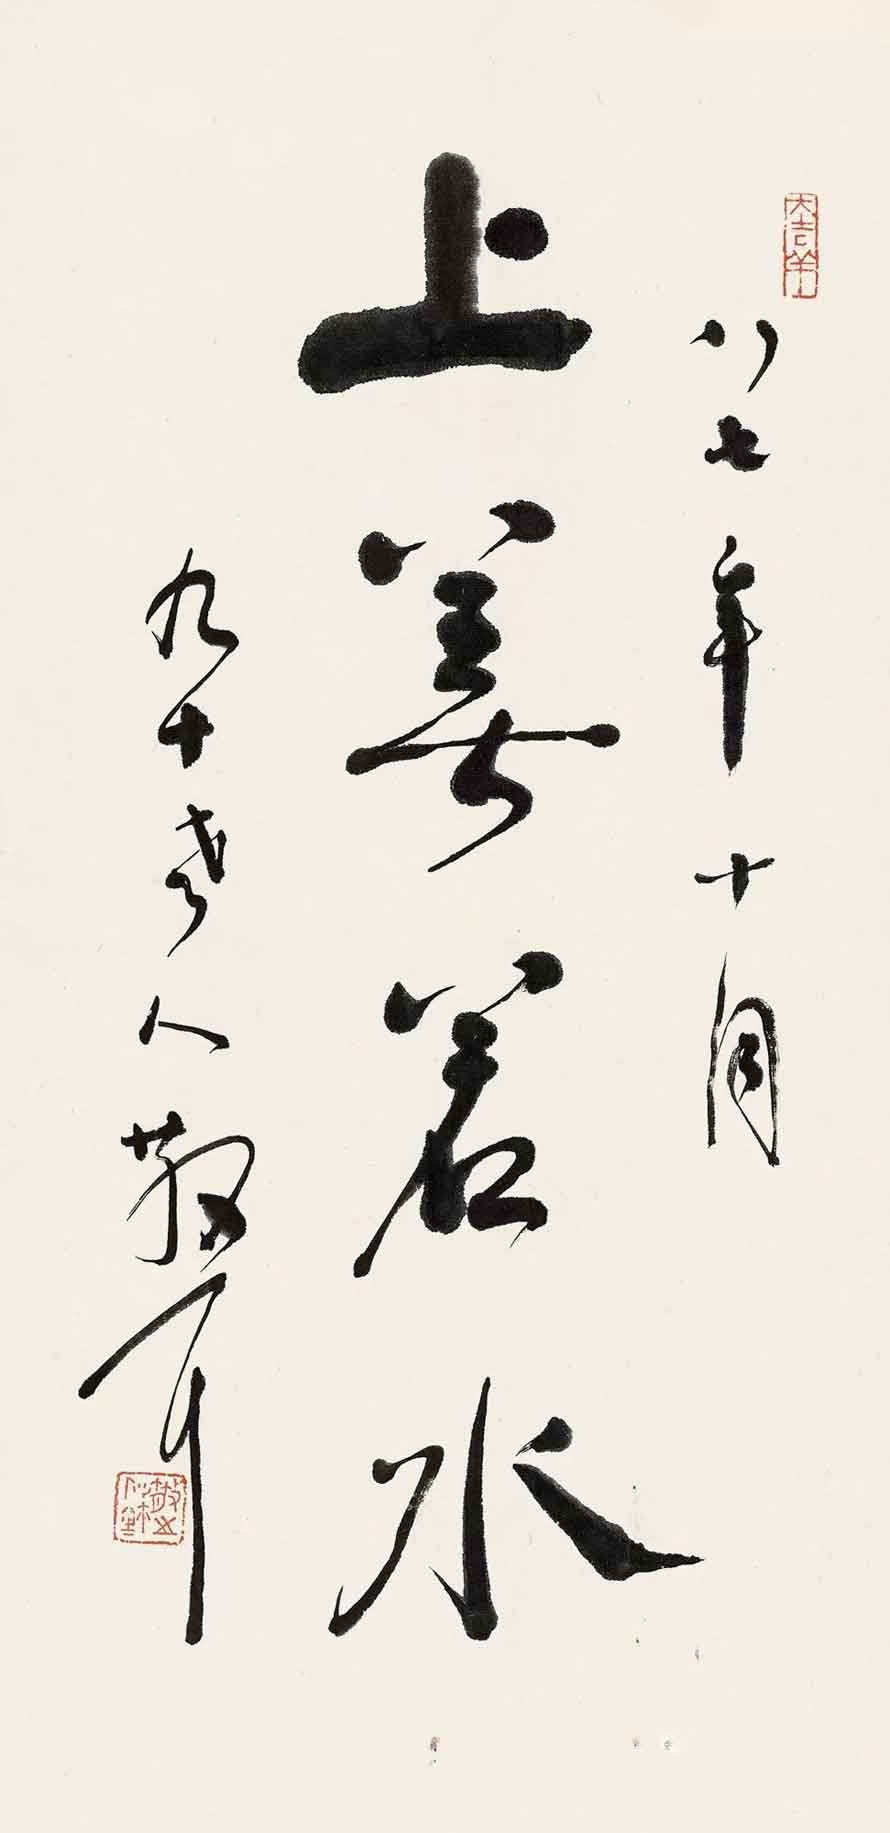 大吉羊
八七年十月
上善若水
九十老人散耳